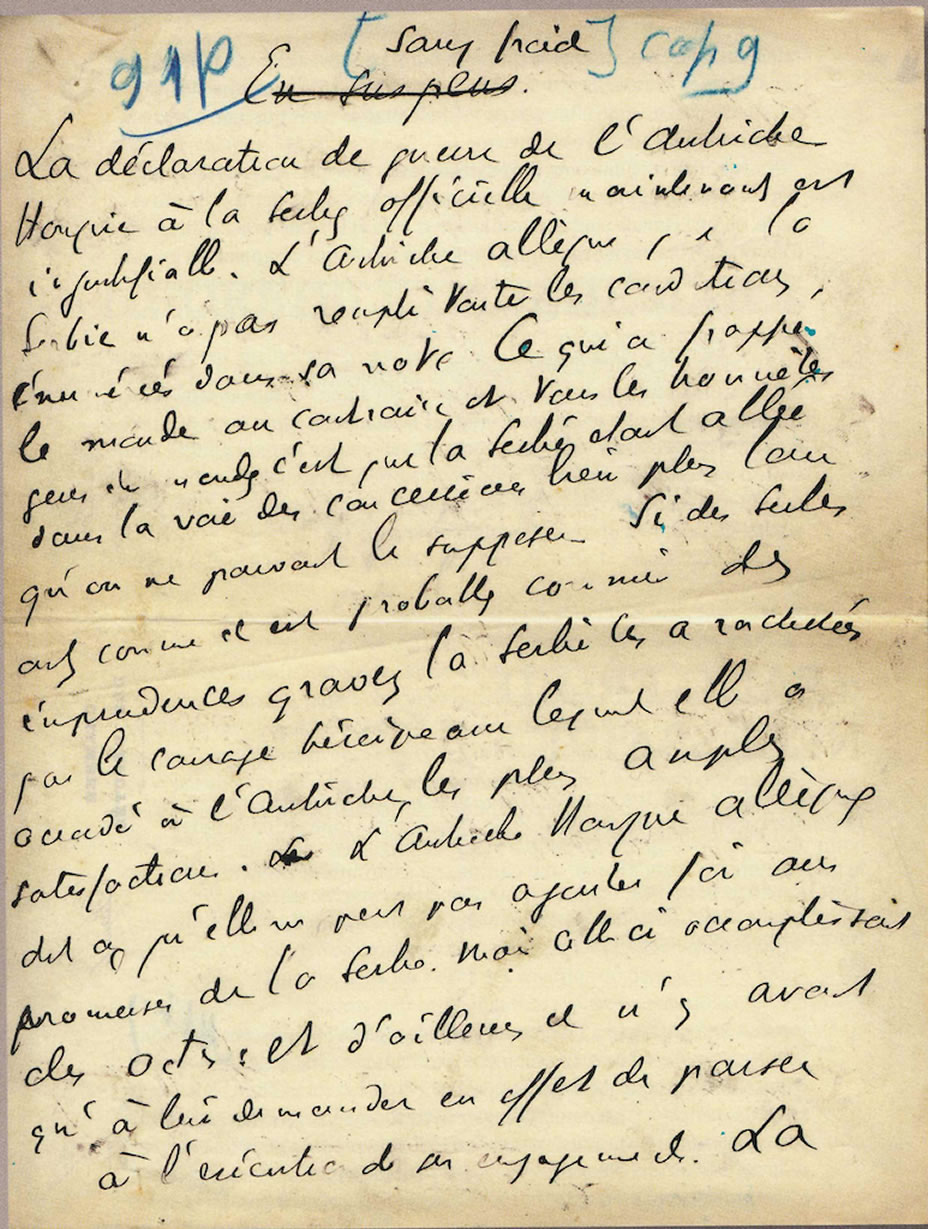 91p [Sang froid] cap 9
~~En suspens~~.
La déclaration de guerre de l'Autriche
Hongrie à la Serbie officielle maintenant est
injustifiable. L'Autriche allègue que la
Serbie n'a pas rempli toutes les conditions,
énoncées dans sa note. Ce qui a frappé
le monde au contraire et tous les honnêtes
gens du monde c'est que la Serbie était allée
dans la voie des concessions bien plus loin
qu'on ne pouvait le supposer. Si des Serbes
ont comme il est probable commis des
imprudences graves la Serbie les a rachetées
par le courage héroïque avec lequel elle a
accordé à l'Autriche, les plus amples
satisfactions. L'Autriche Hongrie allègue
dit on qu'elle ne peut pas ajouter foi aux
promesses de la Serbie. Mais celle ci accomplissait
des actes : et d'ailleurs il n'y avait
qu'à lui demander en effet de passer
à l'exécution de ses engagements. La